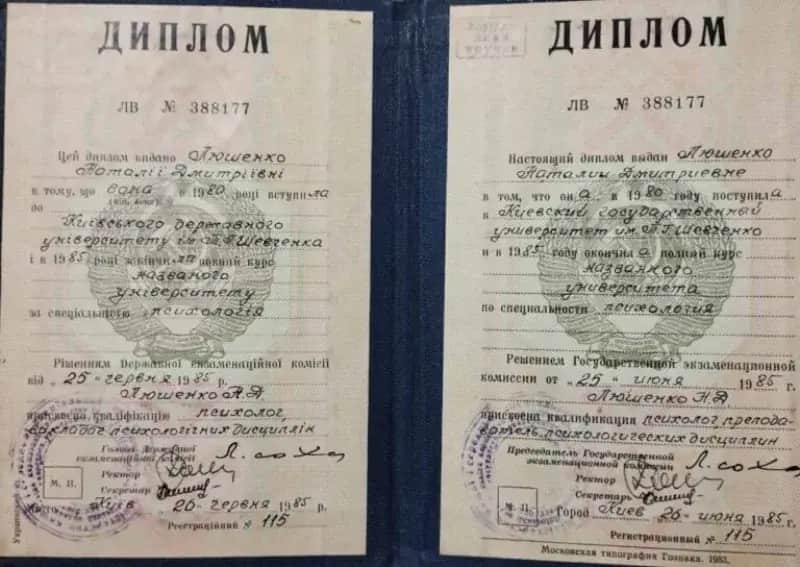 ДИПЛОМ
ЛВ № 388177
Цей диплом видано Люшенко
Наталії Дмитріївні
в тому, що вона в 1980 році вступила
до
Київського державного
університету ім. Т. Г. Шевченка
і в 1985 році закінчила повний курс
названого
університету
за спеціальністю психологія
Рішенням Державної екзаменаційної комісії
від „25" червня 1985 р.
Люшенко Н. Д.
присвоєна кваліфікація психолог,
викладач психологічних дисциплін
Голова Державної
екзаменаційної комісії
Ректор
Секретар
М. П.
Місто Київ 26 червня 1985 р.
Регестраційний № 115
ДИПЛОМ
ЛВ № 388177
Настоящий диплом выдан Люшенко
Наталии Дмитриевне
в том, что она в 1980 году поступила
в Киевский государственный
университет им. Т. Г. Шевченко
и в 1985 году окончила полный курс
названного
университета
по специальности психология
Решением Государственной экзаменационной
комиссии от „25" июня 1985 г.
Люшенко Н. Д.
присвоена квалификация психолог, препода-
ватель психологических дисциплин
Председатель Государственной
экзаменационной комиссии
Ректор
Секретарь
М. П.
Город Киев 26 июня 1985 г.
Регистрационный № 115
Московская типография Гознака. 1983.